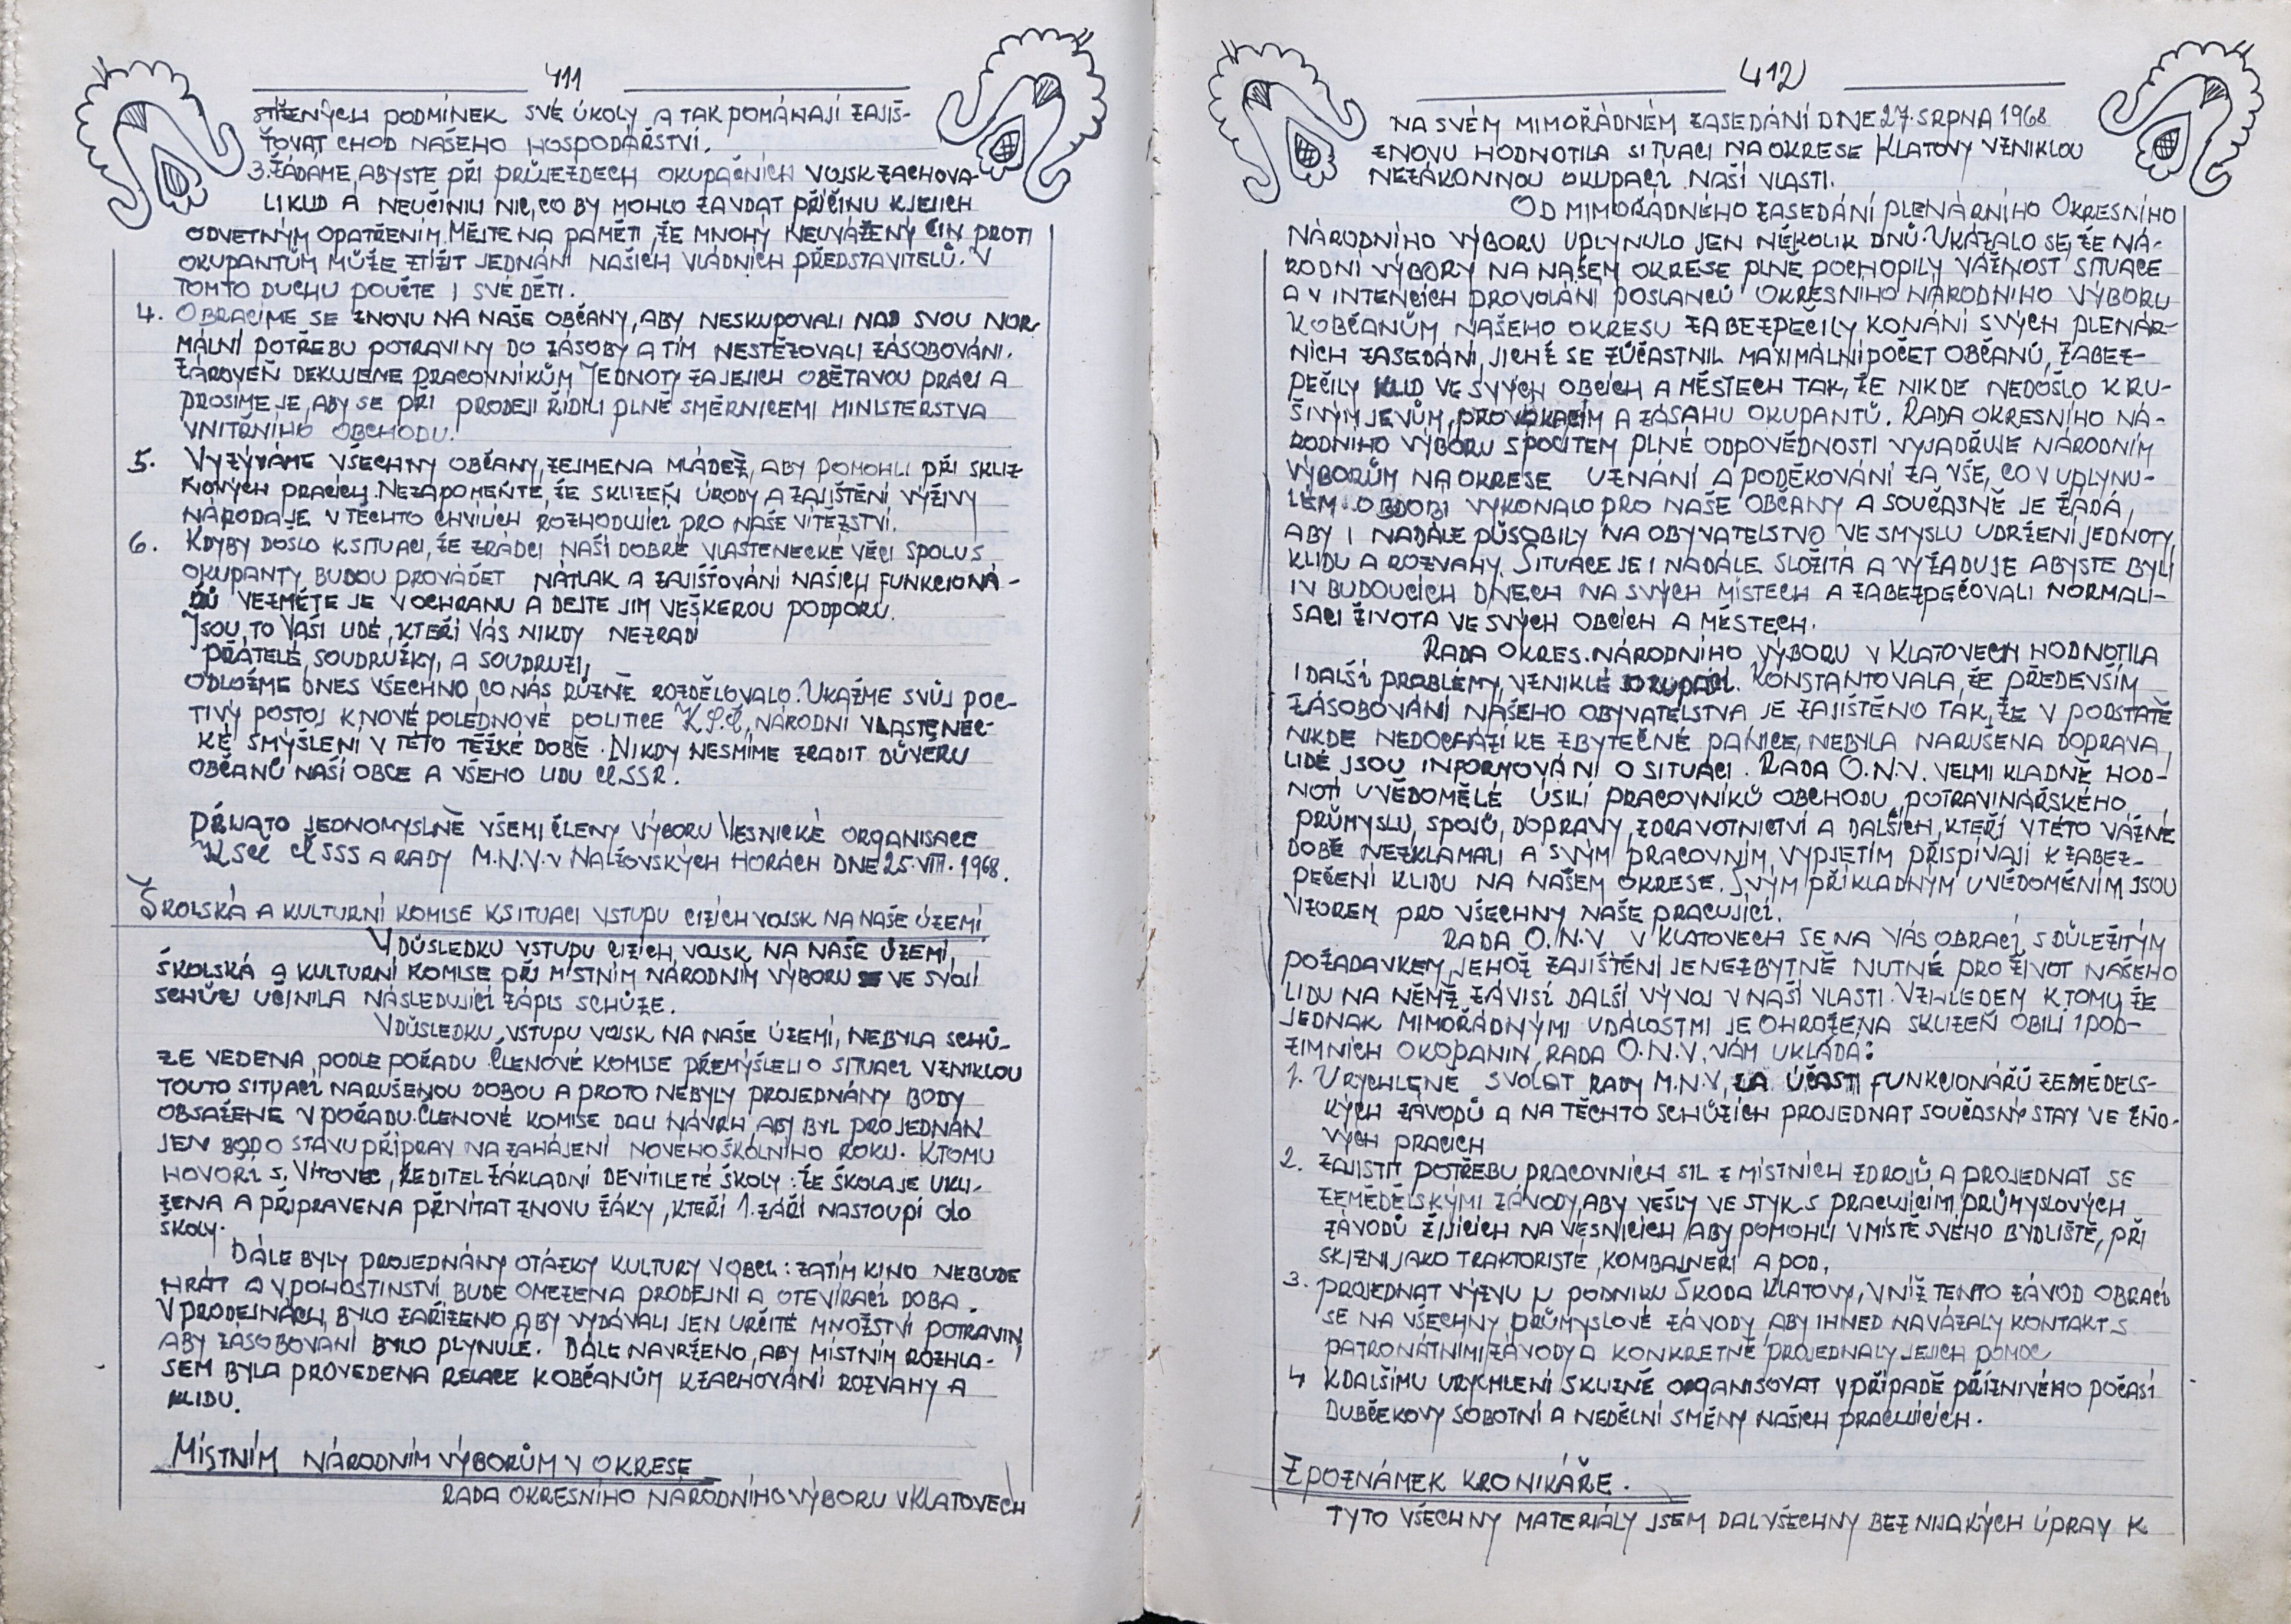 411
STÍŽENÝCH PODMÍNEK SVÉ ÚKOLY A TAK POMÁHAJÍ ZAJIŠ-
ŤOVAT CHOD NAŠEHO HOSPODÁŘSTVÍ.
3. ŽÁDÁME, ABYSTE PŘI PRŮJEZDECH OKUPAČNÍCH VOJSK ZACHOVA-
LI KLID A NEUČINILI NIC, CO BY MOHLO ZAVDAT PŘÍČINU K JEJICH
ODVETNÝM OPATŘENÍM. MĚJTE NA PAMĚTI, ŽE MNOHÝ NEUVÁŽENÝ ČIN PROTI
OKUPANTŮM MŮŽE ZTÍŽIT JEDNÁNÍ NAŠICH VLÁDNÍCH PŘEDSTAVITELŮ. V
TOMTO DUCHU POUČTE I SVÉ DĚTI.
4. OBRACÍME SE ZNOVU NA NAŠE OBČANY, ABY NESKUPOVALI NAD SVOU NOR-
MÁLNÍ POTŘEBU POTRAVINY DO ZÁSOBY A TÍM NESTĚŽOVALI ZÁSOBOVÁNÍ.
ZÁROVEŇ DEKUJEME PRACOVNÍKŮM JEDNOTY ZA JEJICH OBĚTAVOU PRÁCI A
PROSIME JE, ABY SE PŘI PRODEJI ŘÍDILI PLNĚ SMĚRNICEMI MINISTERSTVA
VNITŘNÍHO OBCHODU.
5. VYZÝVÁME VŠECHNY OBČANY, ZEJMENA MLÁDEŽ, ABY POMOHLI PŘI SKLIZ
ŇOVÝCH PRACÍCH. NEZAPOMEŇTE, ŽE SKLIZEŇ ÚRODY A ZAJIŠTĚNÍ VÝŽIVY
NÁRODA JE V TĚCHTO CHVÍLÍCH ROZHODUJÍCÍ PRO NAŠE VÍTĚZSTVÍ.
6. KDYBY DOSLO K SITUACI, ŽE ZRÁDCI NAŠÍ DOBRÉ VLASTENECKÉ VĚCI SPOLU S
OKUPANTY BUDOU PROVÁDĚT NÁTLAK A ZAJIŠŤOVÁNÍ NAŠICH FUNKCIONÁ-
ŘŮ VEZMĚTE JE V OCHRANU A DEJTE JIM VEŠKEROU PODPORU.
JSOU TO VAŠI LIDÉ, KTEŘÍ VÁS NIKDY NEZRADÍ
PŘÁTELÉ, SOUDRUŽKY, A SOUDRUZI,
ODLOŽME DNES VŠECHNO, CO NÁS RŮZNĚ ROZDĚLOVALO. UKAŽME SVŮJ POC-
TIVÝ POSTOJ K NOVÉ POLEDNOVÉ POLITICE K.S.Č, NÁRODNÍ VLASTENEC-
KÉ SMÝŠLENÍ V TÉTO TĚŽKÉ DOBĚ. NIKDY NESMÍME ZRADIT DŮVĚRU
OBČANŮ NAŠÍ OBCE A VŠEHO LIDU ČSSR.
PŘIJATO JEDNOMYSLNĚ VŠEMI ČLENY VÝBORU VESNICKÉ ORGANISACE
KSČ ČSSS A RADY M.N.V. V NALŽOVSKÝCH HORÁCH DNE 25. VIII. 1968.
ŠKOLSKÁ A KULTURNÍ KOMISE K SITUACI VSTUPU CIZÍCH VOJSK NA NAŠE ÚZEMÍ
V DŮSLEDKU VSTUPU CIZÍCH VOJSK NA NAŠE ÚZEMÍ,
ŠKOLSKÁ A KULTURNÍ KOMISE PŘI MÍSTNÍM NÁRODNÍM VÝBORU VE SVOJÍ
SCHŮZI UČINILA NÁSLEDUJÍCÍ ZÁPIS SCHŮZE.
V DŮSLEDKU VSTUPU VOJSK NA NAŠE ÚZEMÍ, NEBYLA SCHŮ-
ZE VEDENA PODLE POŘADU. ČLENOVÉ KOMISE PŘEMÝŠLELI O SITUACI VZNIKLOU
TOUTO SITUACÍ NARUŠENOU DOBOU A PROTO NEBYLY PROJEDNÁNY BODY
OBSAŽENÉ V POŘADU. ČLENOVÉ KOMISE DALI NÁVRH, ABY BYL PROJEDNÁN
JEN BOD O STAVU PŘÍPRAV NA ZAHÁJENÍ NOVÉHO ŠKOLNÍHO ROKU. K TOMU
HOVOŘÍ S. VÍTOVEC, ŘEDITEL ZÁKLADNÍ DEVÍTILETÉ ŠKOLY: ŽE ŠKOLA JE UKLI-
ZENA A PŘIPRAVENA PŘIVÍTAT ZNOVU ŽÁKY, KTEŘÍ 1. ZÁŘÍ NASTOUPÍ DO
ŠKOLY.
DÁLE BYLY PROJEDNÁNY OTÁZKY KULTURY V OBCI: ZATÍM KINO NEBUDE
HRÁT A V POHOSTINSTVÍ BUDE OMEZENA PRODEJNÍ A OTEVÍRACÍ DOBA.
V PRODEJNÁCH BYLO ZAŘÍZENO, ABY VYDÁVALI JEN URČITÉ MNOŽSTVÍ POTRAVIN,
ABY ZASOBOVÁNÍ BYLO PLYNULÉ. DÁLE NAVRŽENO, ABY MÍSTNÍM ROZHLA-
SEM BYLA PROVEDENA RELACE K OBČANŮM K ZACHOVÁNÍ ROZVAHY A
KLIDU.
MÍSTNÍM NÁRODNÍM VÝBORŮM V OKRESE
RADA OKRESNÍHO NÁRODNÍHO VÝBORU V KLATOVECH
412
NA SVÉM MIMOŘÁDNÉM ZASEDÁNÍ DNE 27. SRPNA 1968
ZNOVU HODNOTILA SITUACI NA OKRESE KLATOVY VZNIKLOU
NEZÁKONNOU OKUPACÍ NAŠÍ VLASTI.
OD MIMOŘÁDNÉHO ZASEDÁNÍ PLENÁRNÍHO OKRESNÍHO
NÁRODNÍHO VÝBORU UPLYNULO JEN NĚKOLIK DNŮ. UKÁZALO SE, ŽE NÁ-
RODNÍ VÝBORY NA NAŠEM OKRESE PLNĚ POCHOPILY VÁŽNOST SITUACE
A V INTENCÍCH PROVOLÁNÍ POSLANCŮ OKRESNÍHO NÁRODNÍHO VÝBORU
K OBČANŮM NAŠEHO OKRESU ZABEZPEČILY KONÁNÍ SVÝCH PLENÁR-
NÍCH ZASEDÁNÍ, JICHŽ SE ZÚČASTNIL MAXIMÁLNÍ POČET OBČANŮ, ZABEZ-
PEČILY KLID VE SVÝCH OBCÍCH A MĚSTECH TAK, ŽE NIKDE NEDOŠLO K RU-
ŠIVÝM JEVŮM, PROVOKACÍM A ZÁSAHU OKUPANTŮ. RADA OKRESNÍHO NÁ-
RODNÍHO VÝBORU S POCITEM PLNÉ ODPOVĚDNOSTI VYJADŘUJE NÁRODNÍM
VÝBORŮM NA OKRESE UZNÁNÍ A PODĚKOVÁNÍ ZA VŠE, CO V UPLYNU-
LÉM OBDOBÍ VYKONALO PRO NAŠE OBČANY A SOUČASNĚ JE ŽÁDÁ,
ABY I NADÁLE PŮSOBILY NA OBYVATELSTVO VE SMYSLU UDRŽENÍ JEDNOTY,
KLIDU A ROZVAHY. SITUACE JE I NADÁLE SLOŽITÁ A VYŽADUJE ABYSTE BYLI
I V BUDOUCÍCH DNECH NA SVÝCH MÍSTECH A ZABEZPEČOVALI NORMALI-
SACI ŽIVOTA VE SVÝCH OBCÍCH A MĚSTECH.
RADA OKRES. NÁRODNÍHO VÝBORU V KLATOVECH HODNOTILA
I DALŠÍ PROBLÉMY, VZNIKLÉ OKUPACÍ. KONSTANTOVALA, ŽE PŘEDEVŠÍM
ZÁSOBOVÁNÍ NAŠEHO OBYVATELSTVA JE ZAJIŠTĚNO TAK, ŽE V PODSTATĚ
NIKDE NEDOCHÁZÍ KE ZBYTEČNÉ PANICE, NEBYLA NARUŠENA DOPRAVA,
LIDÉ JSOU INFORMOVÁNÍ O SITUACI. RADA O.N.V. VELMI KLADNĚ HOD-
NOTÍ UVĚDOMĚLÉ ÚSILÍ PRACOVNÍKŮ OBCHODU, POTRAVINÁŘSKÉHO
PRŮMYSLU, SPOJŮ, DOPRAVY, ZDRAVOTNICTVÍ A DALŠÍCH, KTEŘÍ V TÉTO VÁŽNÉ
DOBĚ NEZKLAMALI A SVÝM PRACOVNÍM VYPJETÍM PŘISPÍVAJÍ K ZABEZ-
PEČENÍ KLIDU NA NAŠEM OKRESE. SVÝM PŘÍKLADNÝM UVĚDOMĚNÍM JSOU
VZOREM PRO VŠECHNY NAŠE PRACUJÍCÍ.
RADA O.N.V V KLATOVECH SE NA VÁS OBRACÍ S DŮLEŽITÝM
POŽADAVKEM, JEHOŽ ZAJIŠTĚNÍ JE NEZBYTNĚ NUTNÉ PRO ŽIVOT NAŠEHO
LIDU NA NĚMŽ ZÁVISÍ DALŠÍ VÝVOJ V NAŠÍ VLASTI. VZHLEDEM K TOMU, ŽE
JEDNAK MIMOŘÁDNÝMI UDÁLOSTMI JE OHROŽENA SKLIZEŇ OBILÍ I POD-
ZIMNÍCH OKOPANIN, RADA O.N.V. VÁM UKLÁDÁ:
1. URYCHLENĚ SVOLAT RADY M.N.V, ZA ÚČASTI FUNKCIONÁŘŮ ZEMĚDĚLS-
KÝCH ZÁVODŮ A NA TĚCHTO SCHŮZÍCH PROJEDNAT SOUČASNÝ STAV VE ŽŇO-
VÝCH PRACÍCH
2. ZAJISTIT POTŘEBU PRACOVNÍCH SIL Z MÍSTNÍCH ZDROJŮ A PROJEDNAT SE
ZEMĚDĚLSKÝMI ZÁVODY, ABY VEŠLY VE STYK S PRACUJÍCÍMI PRŮMYSLOVÝCH
ZÁVODŮ ŽIJÍCÍCH NA VESNICÍCH, ABY POMOHLI V MÍSTĚ SVÉHO BYDLIŠTĚ, PŘI
SKLIZNI JAKO TRAKTORISTÉ, KOMBAJNEŘI A POD.
3. PROJEDNAT VÝZVU N PODNIKU ŠKODA KLATOVY, V NÍŽ TENTO ZÁVOD OBRACÍ
SE NA VŠECHNY PRŮMYSLOVÉ ZÁVODY, ABY IHNED NAVÁZALY KONTAKT S
PATRONÁTNÍMI ZÁVODY A KONKRETNĚ PROJEDNALY JEJICH POMOC
4 K DALŠÍMU URYCHLENÍ SKLIZNĚ ORGANISOVAT V PŘÍPADĚ PŘÍZNIVÉHO POČASÍ
DUBČEKOVY SOBOTNÍ A NEDĚLNÍ SMĚNY NAŠICH PRACUJÍCÍCH.
Z POZNÁMEK KRONIKÁŘE.
TYTO VŠECHNY MATERIÁLY JSEM DAL VŠECHNY BEZ NIJAKÝCH ÚPRAV K